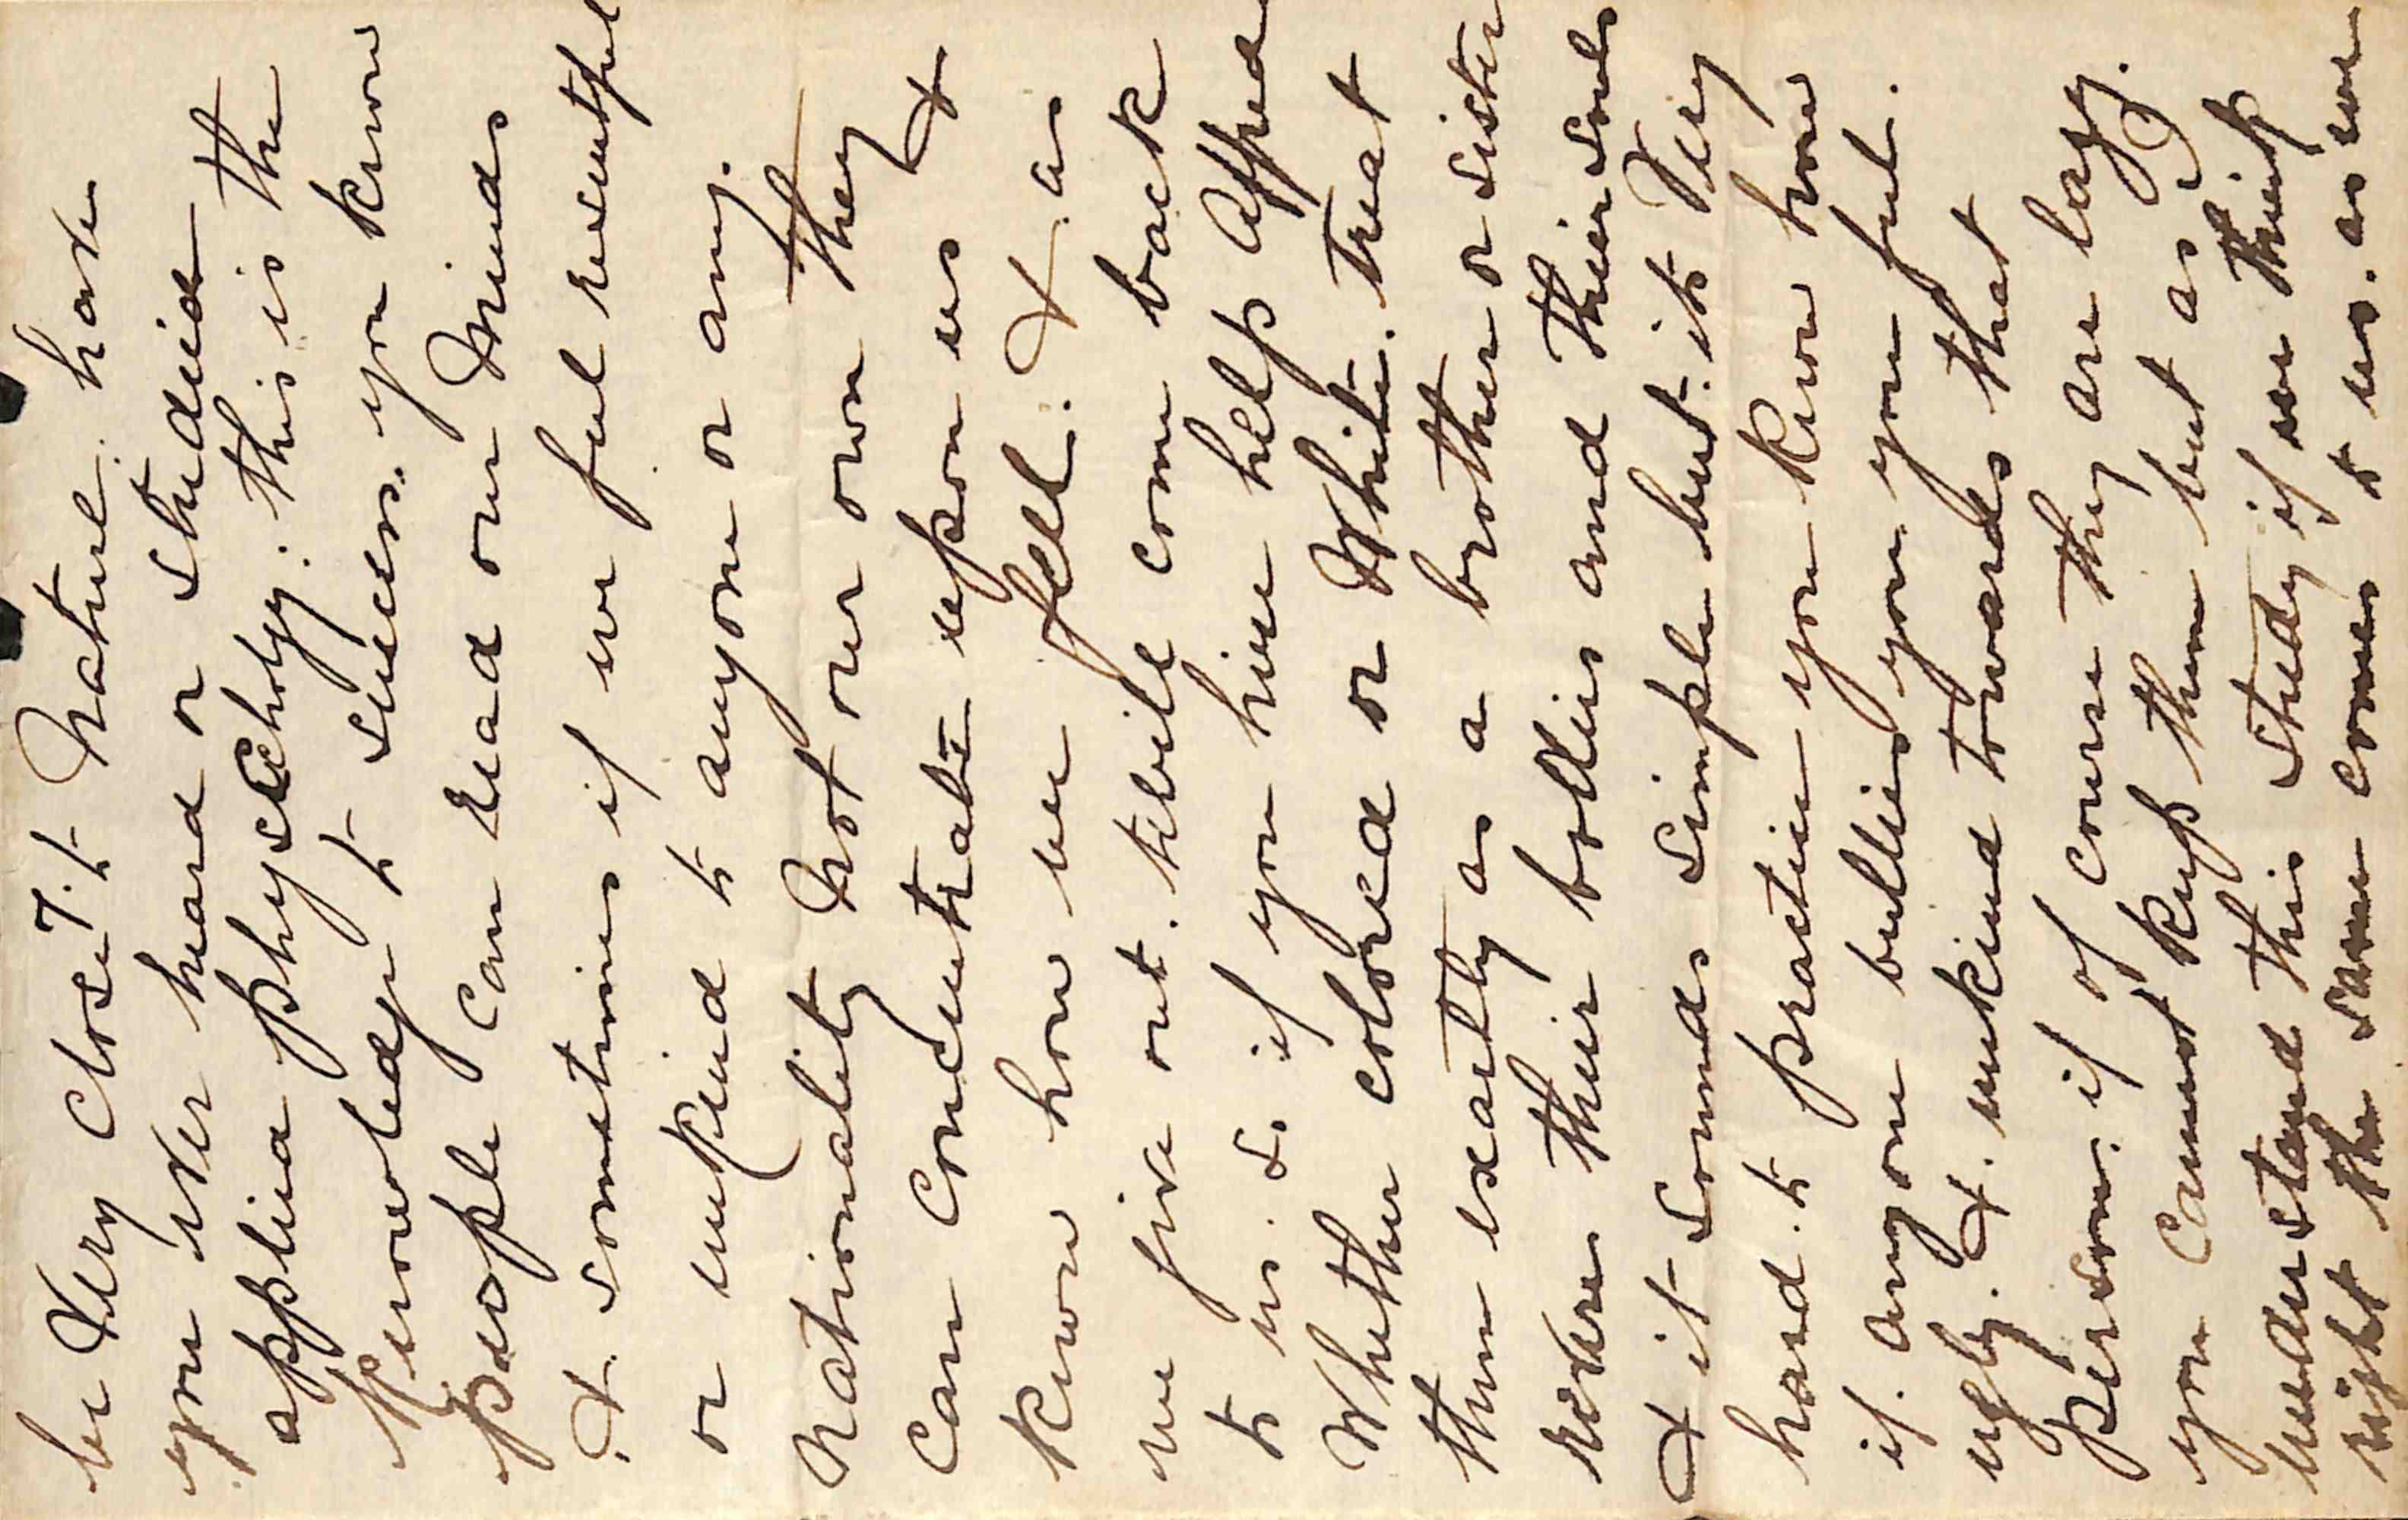 be very close T. to Nature. have
you ever heard or studied
applied physcchology: this is the
knowledge to success. you know
people can read our minds
&. sometimes if we feel resentful
or unkind to anyone or any.
Nationality not our own they
can concentrate upon us &
know how we feel. &. as
we give out. tibile come back
to us. S. if you hire help
Whether colored or White. treat
them exactly as a brother or sister
revere their bodies and their souls
& it sounds simple but. its very
hard. to practice you know how
if. anyone bullies you. you feel.
ugly. &. unkind towards that
person. if of course they are lazy.
you cannot keep them but as I
understand this study if we think
right the same comes to us. as we